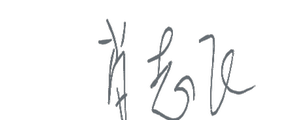 肖志飞